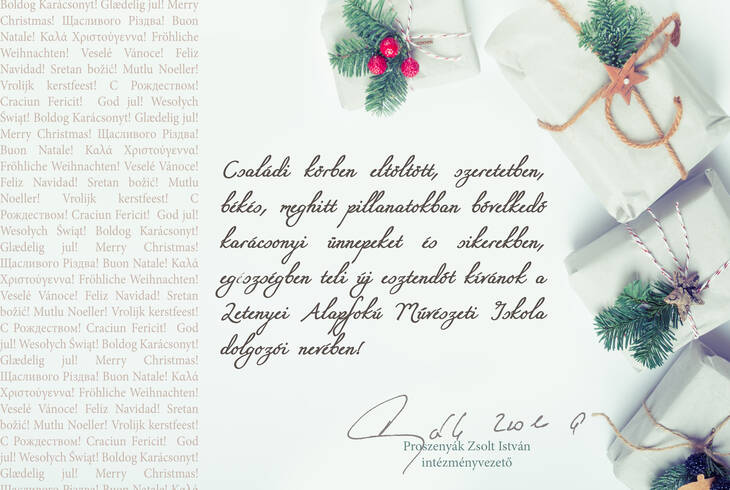 Boldog Karácsonyt! Glædelig jul! Merry
Christmas! Щасливого Різдва! Buon
Natale! Καλά Χριστούγεννα! Fröhliche
Weihnachten! Veselé Vánoce! Feliz
Navidad! Sretan božić! Mutlu Noeller!
Vrolijk kerstfeest! С Рождеством!
Craciun Fericit! God jul! Wesołych
Świąt! Boldog Karácsonyt! Glædelig jul!
Merry Christmas! Щасливого Різдва!
Buon Natale! Καλά Χριστούγεννα!
Fröhliche Weihnachten! Veselé Vánoce!
Feliz Navidad! Sretan božić! Mutlu
Noeller! Vrolijk kerstfeest! С
Рождеством! Craciun Fericit! God jul!
Wesołych Świąt! Boldog Karácsonyt!
Glædelig jul! Merry Christmas!
Щасливого Різдва! Buon Natale! Καλά
Χριστούγεννα! Fröhliche Weihnachten!
Veselé Vánoce! Feliz Navidad! Sretan
božić! Mutlu Noeller! Vrolijk kerstfeest!
С Рождеством! Craciun Fericit! God
jul! Wesołych Świąt! Boldog Karácsonyt!
Glædelig jul! Merry Christmas!
Щасливого Різдва! Buon Natale! Καλά
Χριστούγεννα! Fröhliche Weihnachten!
Veselé Vánoce! Feliz Navidad! Sretan
božić! Mutlu Noeller! Vrolijk kerstfeest!
С Рождеством! Craciun Fericit! God
jul! Wesołych Świąt! Boldog Karácsonyt!
Glædelig jul! Merry Christmas!
Щасливого Різдва! Buon Natale! Καλά
Családi körben eltöltött, szeretetben,
békés, meghitt pillanatokban bővelkedő
karácsonyi ünnepeket és sikerekben,
egészségben teli új esztendőt kívánok a
Letenyei Alapfokú Művészeti Iskola
dolgozói nevében!
Proszenyák Zsolt István
intézményvezető